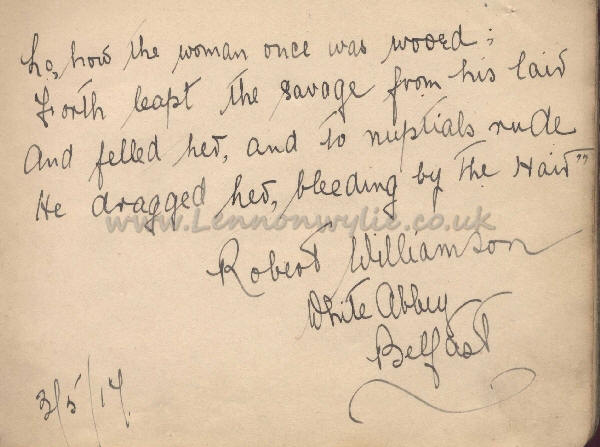 Lo, how the woman once was wooed:
Forth leapt the savage from his lair
And felled her, and to nuptials rude
He dragged her, bleeding by the Hair"
www.Lennonwylie.co.uk
Robert Williamson
White Abbey
Belfast
3/5/17.